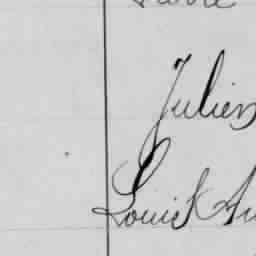 Julien
Louis Au